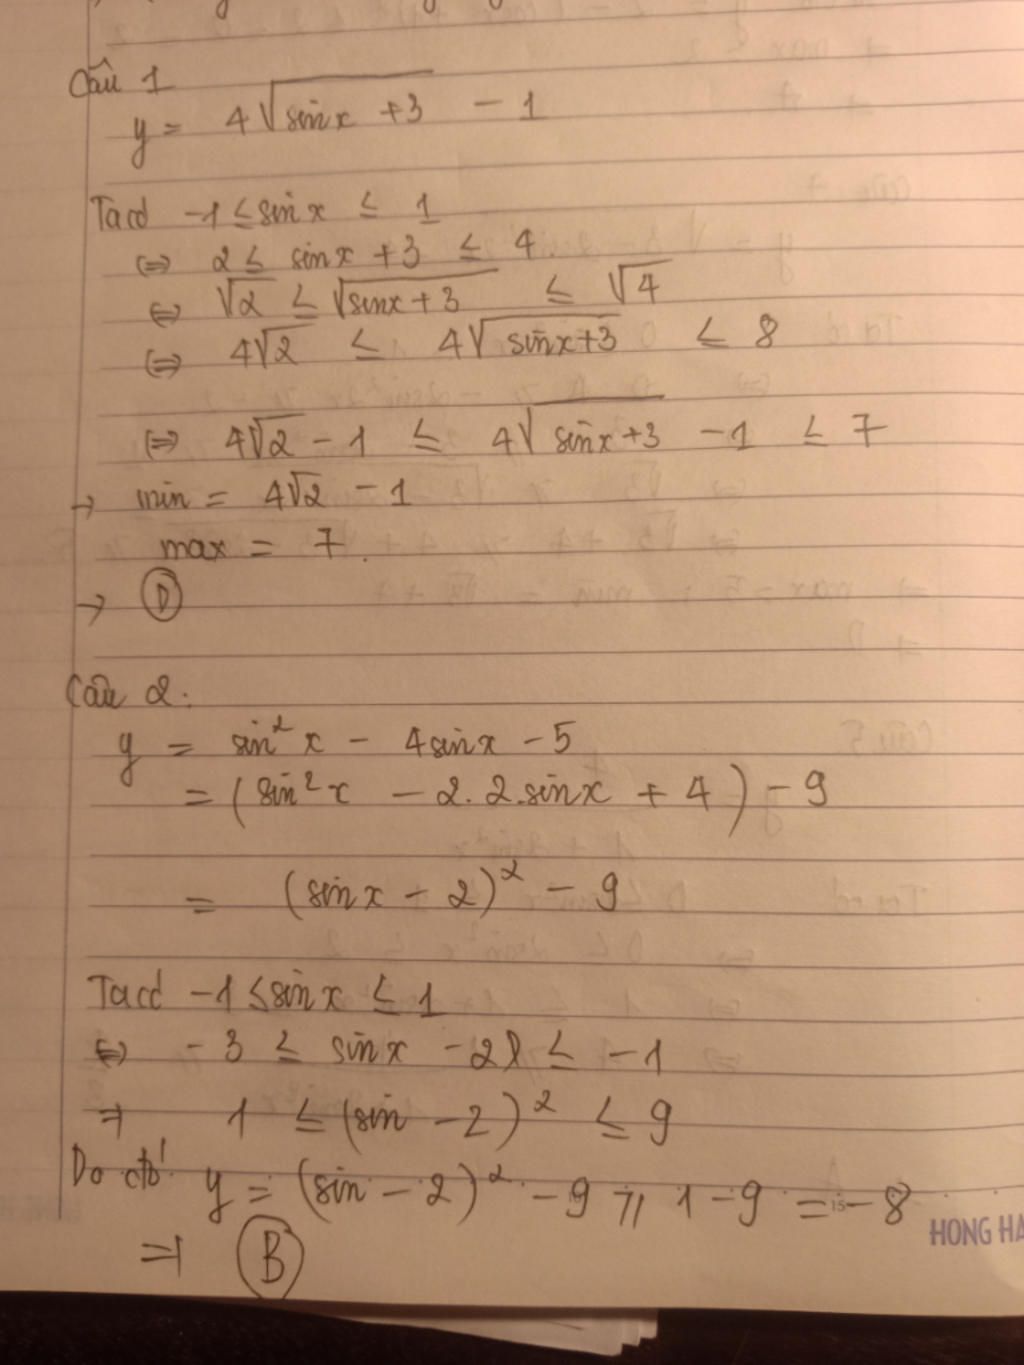 Câu 1
y = 4√(sinx + 3) - 1
Ta có -1 ≤ sinx ≤ 1
⇔ 2 ≤ sinx + 3 ≤ 4
⇔ √2 ≤ √(sinx + 3) ≤ √4
⇔ 4√2 ≤ 4√(sinx+3) ≤ 8
⇔ 4√2 - 1 ≤ 4√(sinx+3) - 1 ≤ 7
→ min = 4√2 - 1
max = 7.
→ D
Câu 2:
y = sin²x - 4sinx - 5
= (sin²x - 2.2.sinx + 4) - 9
= (sinx - 2)² - 9
Ta có -1 ≤ sinx ≤ 1
⇔ -3 ≤ sinx - 2 ≤ -1
⇒ 1 ≤ (sin - 2)² ≤ 9
Do đó y = (sin - 2)² - 9 ⩾ 1 - 9 = -8
15
HONG HA
⇒ B